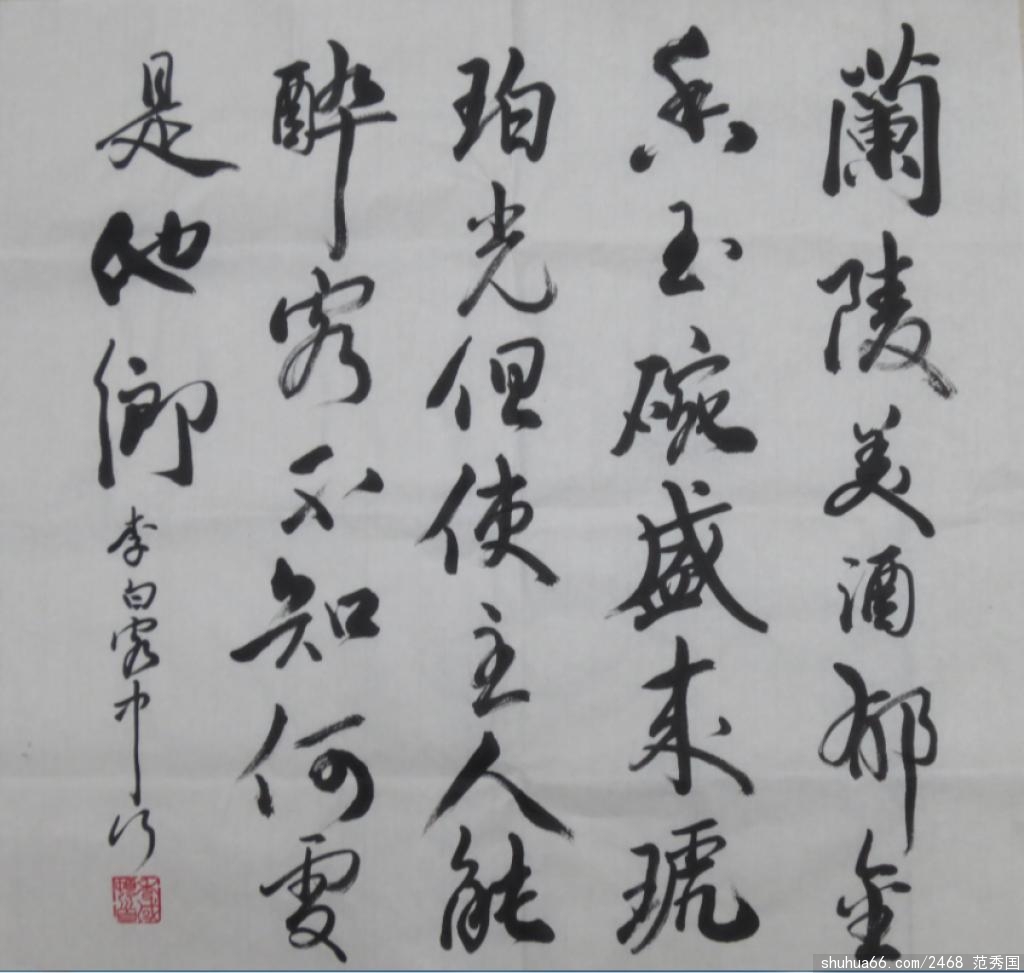 蘭陵美酒郁金
香玉碗盛来琥
珀光但使主人能
醉客不知何處
是他鄉
李白客中行
shuhua66.com/2468 范秀国